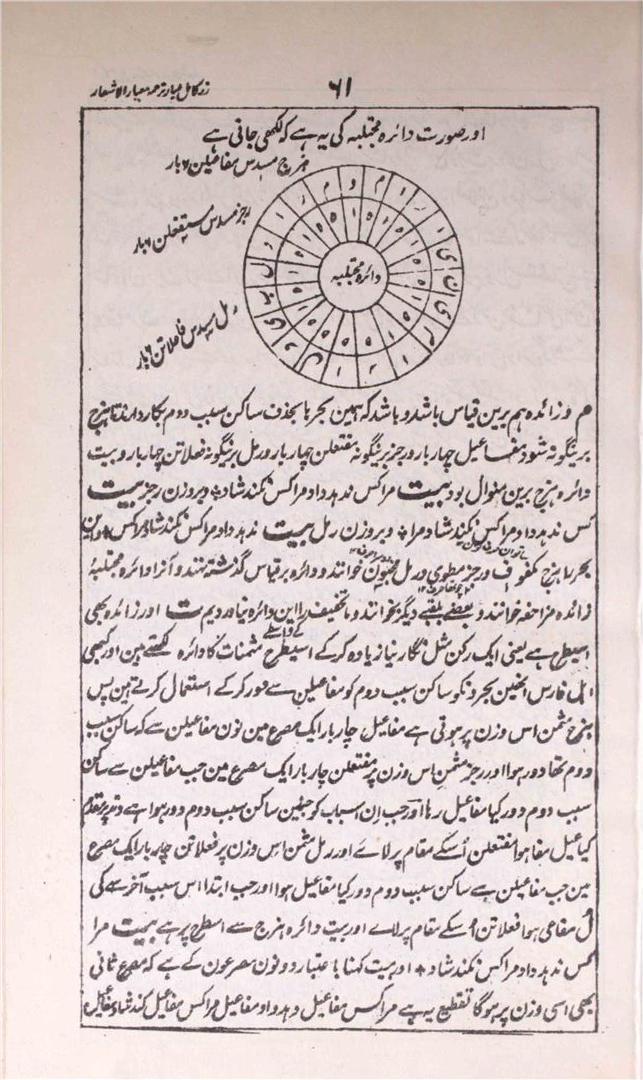 ۶۱
زر کامل عیار ترجمہ معیار الاشعار
اور صورت دائرہ مجتلبہ کی یہ ہے کہ لکھی جاتی ہے
ہزج مسدس مفاعیلن ۶ بار
رجز مسدس مستفعلن ۶ بار
رمل مسدس فاعلاتن ۶ بار
دائرہ مجتلبہ
م و زائدہ ہم برین قیاس باشد و باشد کہ ہمین بحر ہا بحذف ساکن سبب دوم بکار دارند تا ہزج
برینگونہ شود مفاعیل چہار بار و رجز برینگونہ مفتعلن چہار بار و رمل برینگونہ فعلاتن چہار بار و بیت
دائرہ ہزج برین منوال بود بیت مرا کس ندہد داد مرا کس نکند شاد و بر وزن رجز بیت
کس ندہد داد مرا کس نکند شاد مرا و بر وزن رمل بیت ندہد داد مرا کس نکند شاد مرا کس و این
بحر ہا ہزج مکفوف و رجز مطوی و رمل مخبون خوانند و دائرہ بر قیاس گذشتہ نہند و آنرا دائرہ مجتلبۂ
زائدہ مزاحفہ خوانند و بعضے بلقبے دیگر خوانند و ما تخفیف را این دائرہ نیاوردیم ت اور زائدہ بھی
اسیطرح ہے یعنی ایک رکن مثل نگار نیا زیادہ کر کے اسیطرح مثمنات کا دائرہ لکھتے ہین اور کبھی
کے واسطے
اہل فارس انھین بحرونکو ساکن سبب دوم کو مفاعیلن سے دور کر کے استعمال کرتے ہین پس
ہزج مثمن اس وزن پر ہوتی ہے مفاعیل چار بار ایک مصرع مین نون مفاعیلن سے کہ ساکن سبب
دوم تھا دور ہوا اور رجز مثمن اس وزن پر مفتعلن چار بار ایک مصرع مین جب مفاعیلن سے ساکن
سبب دوم دور کیا مفاعیل رہا اور جب ان اسباب کو جنین ساکن سبب دوم دور ہوا ہے وتد پر تقدیم
کیا عیل مفا ہوا مفتعلن اسکے مقام پر لائے اور رمل مثمن اس وزن پر فعلاتن چار بار ایک مصرع
مین جب مفاعیلن سے ساکن سبب دوم دور کیا مفاعیل ہوا اور جب ابتدا اس سبب آخر سے کی
ل مفاعی ہوا فعلاتن اسکے مقام پر لائے اور بیت دائرہ ہزج سے اسطرح پر ہے بیت مرا
کس ندہد داد مرا کس نکند شاد اور بیت کہنا باعتبار دونون مصرعون کے ہے کہ مصرع ثانی
بھی اسی وزن پر ہوگا تقطیع یہ ہے مرا کس مفاعیل دہد داد مفاعیل مرا کس مفاعیل کند شاد مفاعیل